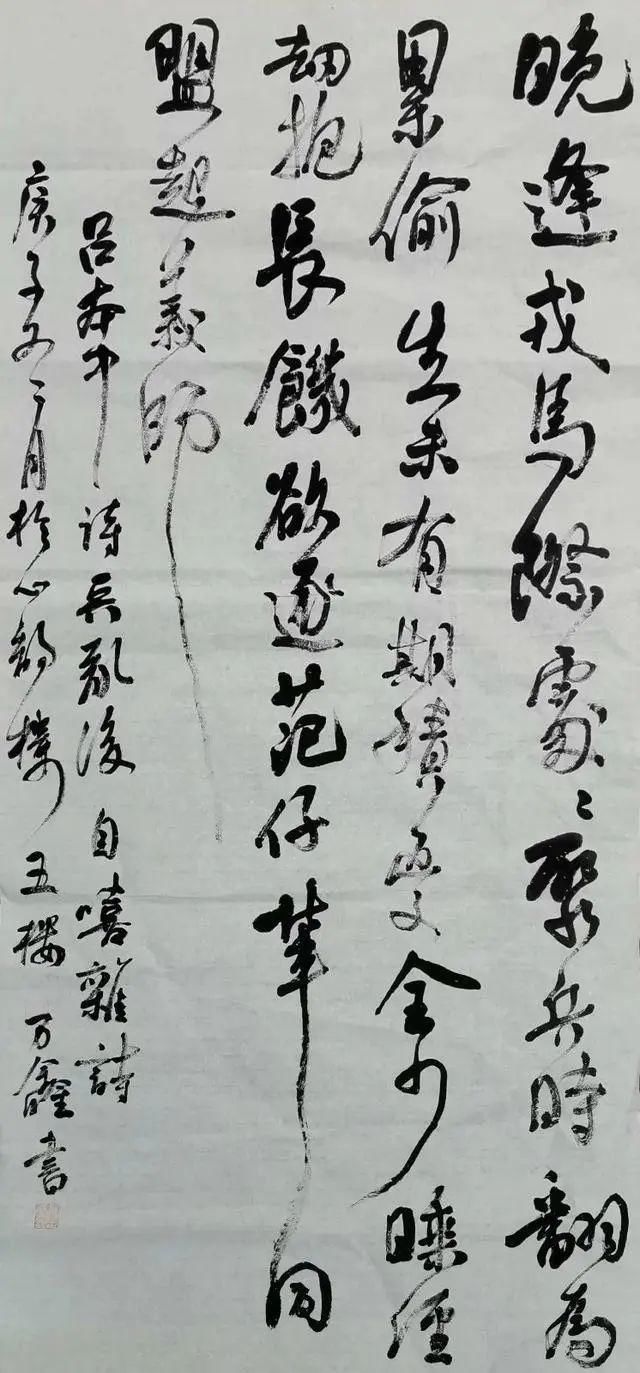 晚逢戎馬際處々聚兵時翻為
累偷生未有期積憂全少睡經
劫抱長饑欲逐范仔輩同
盟起義師
呂本中詩兵亂後自嘻雜詩
庚子二月於心韻樓万鑫書